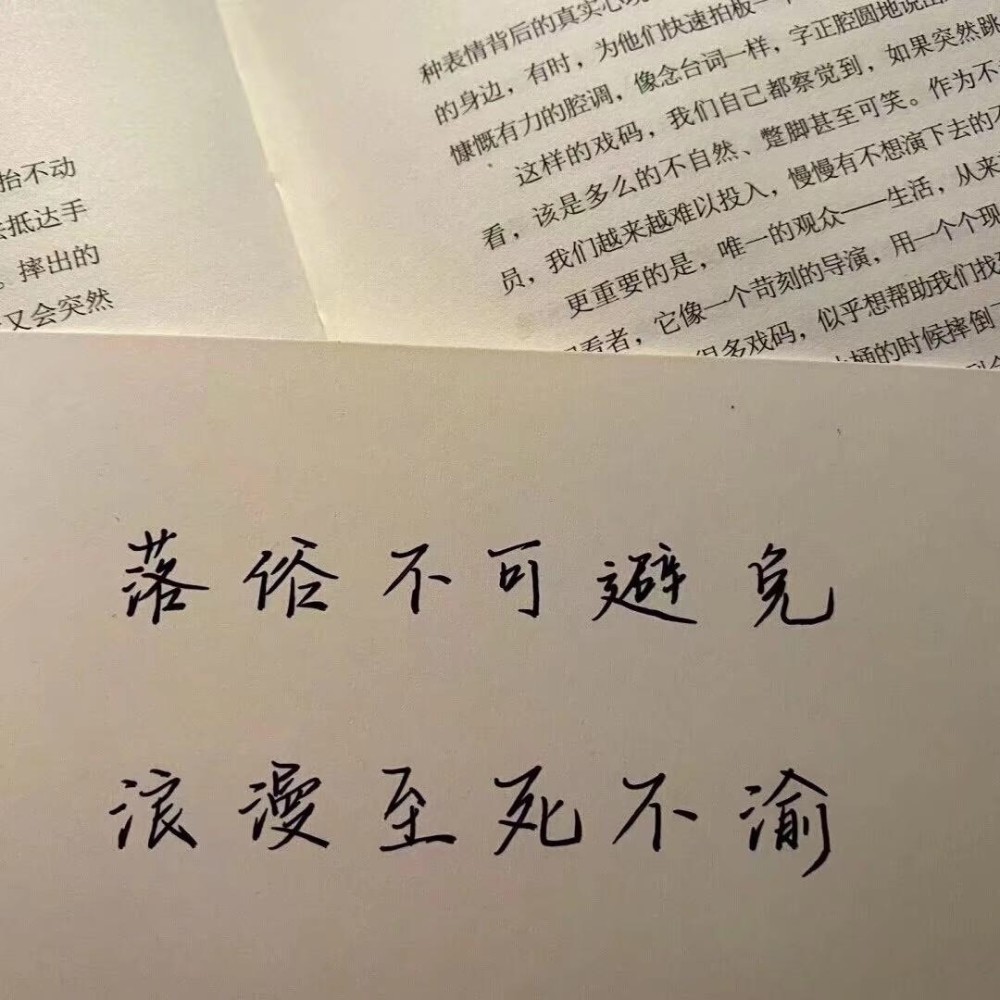 抬不动
抵达手
。摔出的
又会突然
种表情背后的真实心
的身边，有时，为他们快速拍板一个
慷慨有力的腔调，像念台词一样，字正腔圆地说出
这样的戏码，我们自己都察觉到，如果突然跳
看，该是多么的不自然、蹩脚甚至可笑。作为不
员，我们越来越难以投入，慢慢有不想演下去的
更重要的是，唯一的观众——生活，从来
看者，它像一个苛刻的导演，用一个个现
很多戏码，似乎想帮助我们找到
桶的时候摔倒了
落俗不可避免
浪漫至死不渝